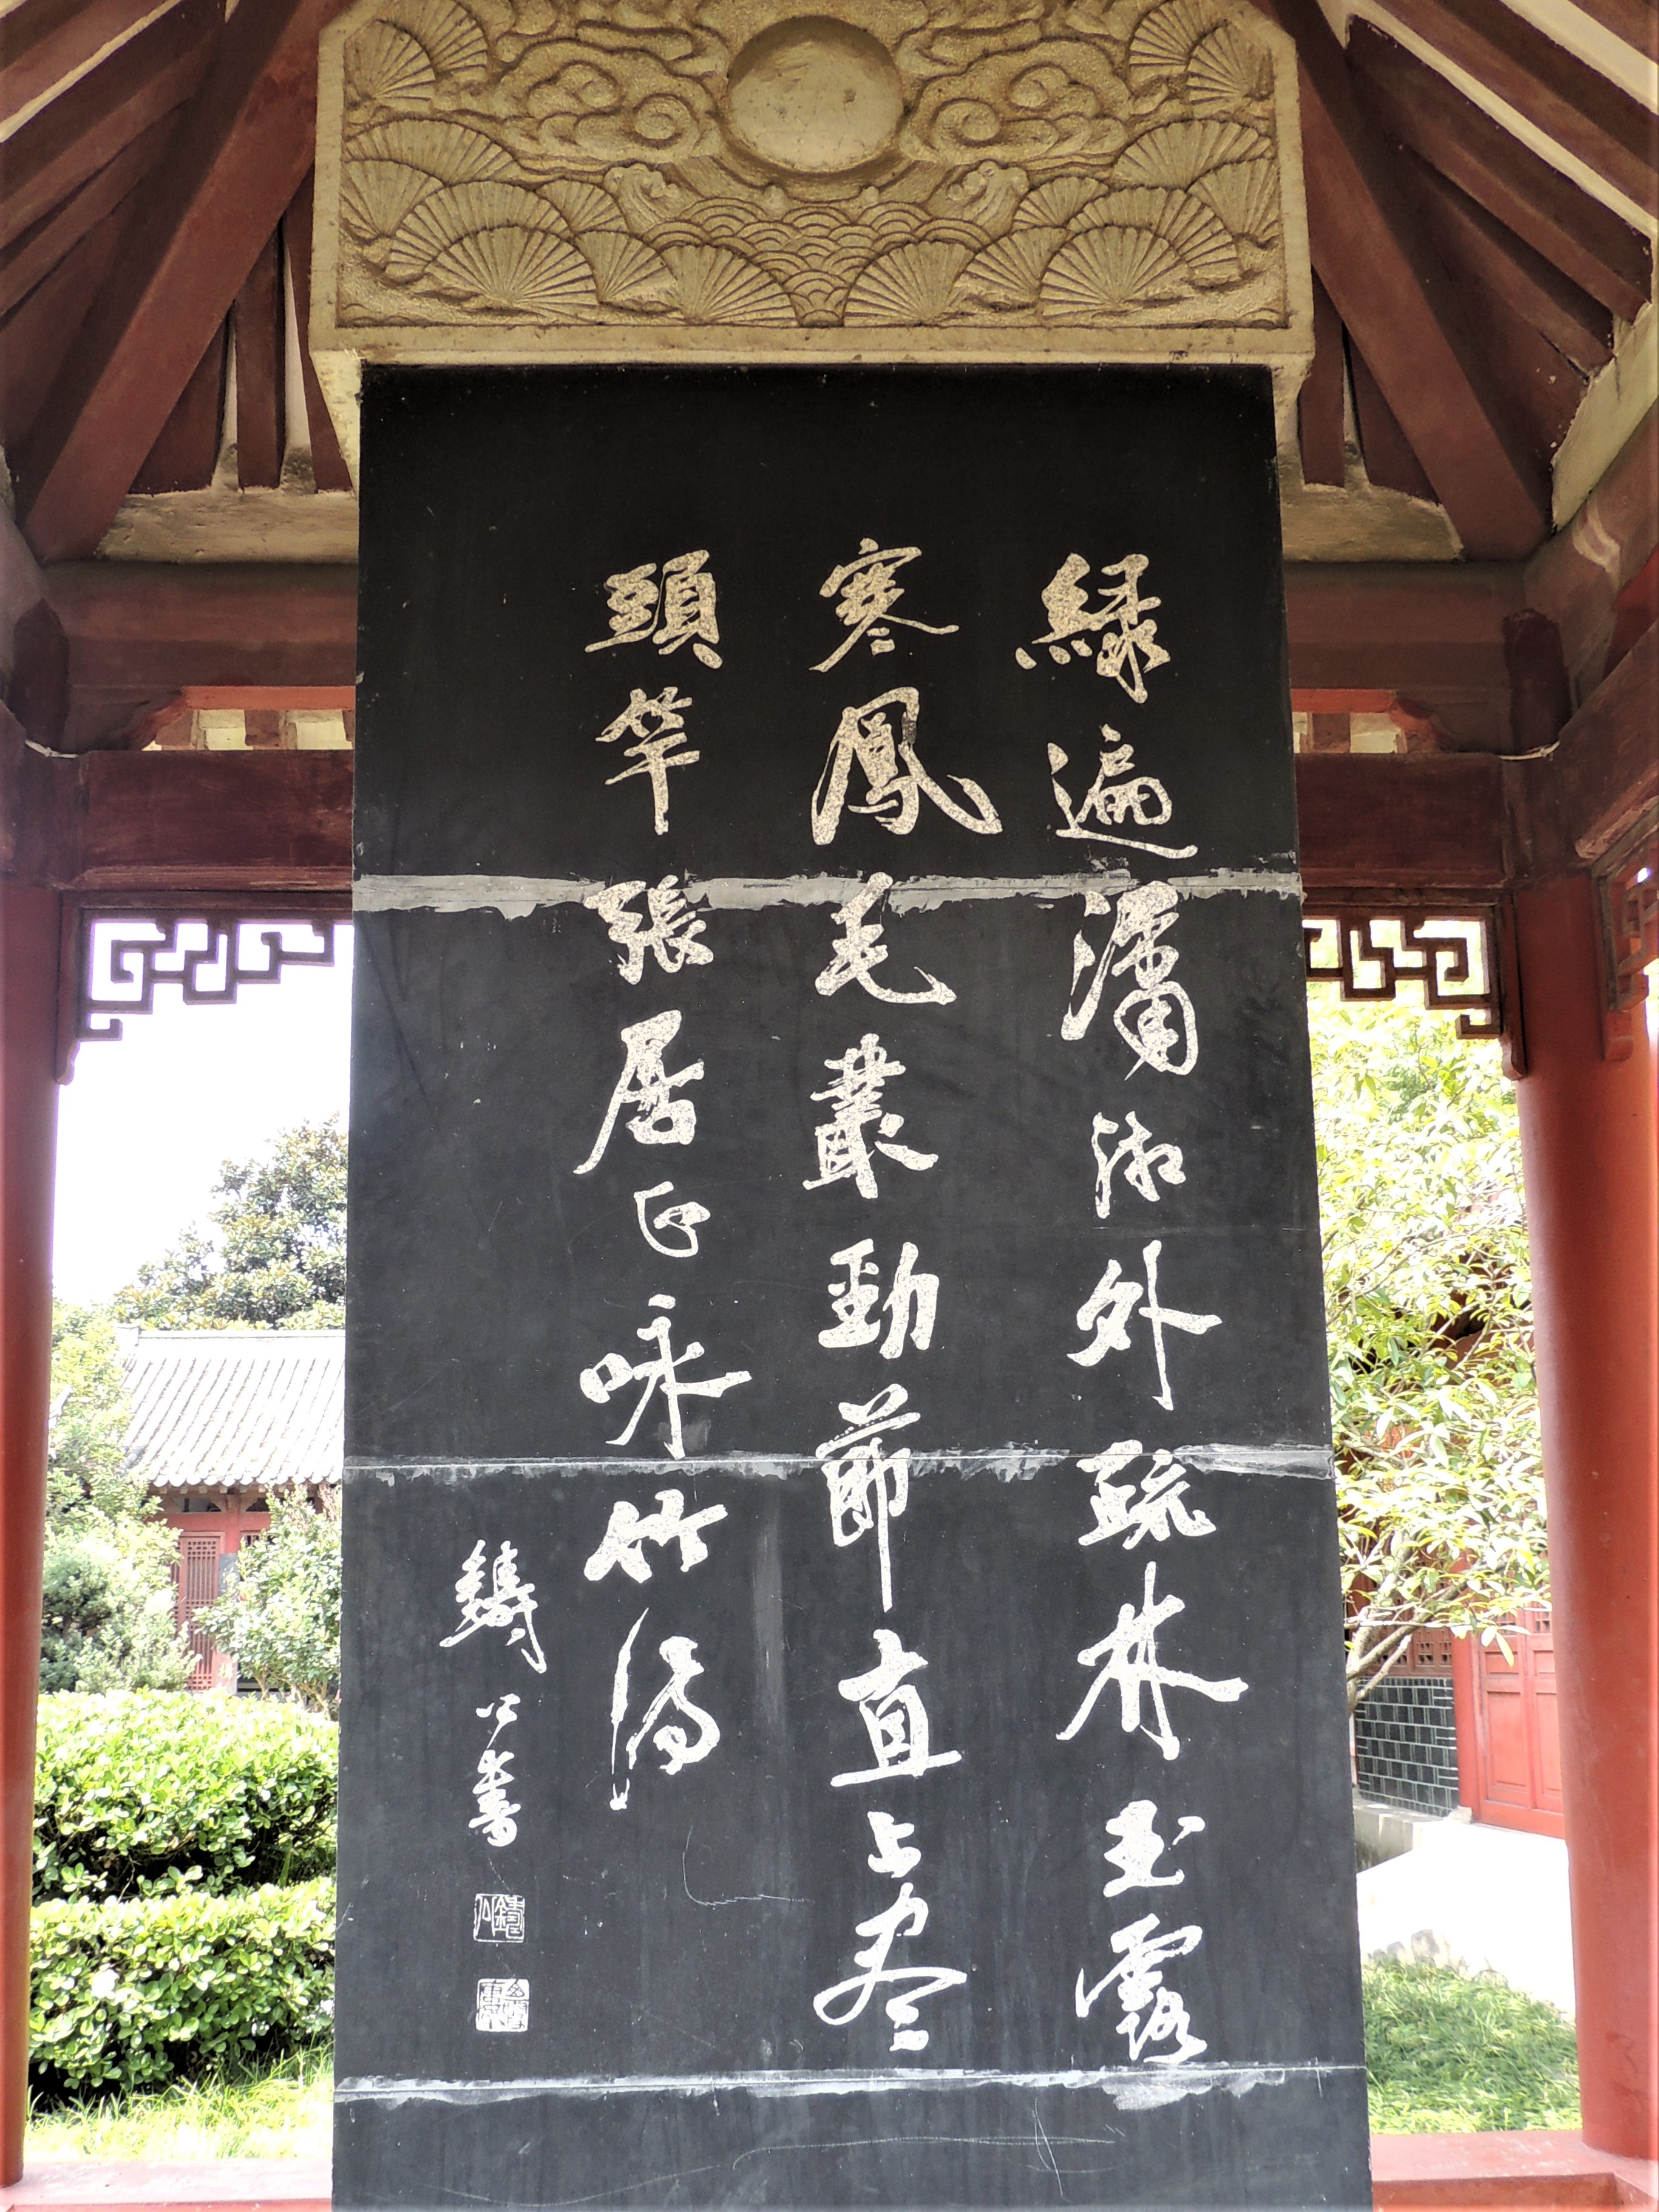 綠遍瀟湘外疏林玉露
寒鳳毛叢勁節直上尽
頭竿張居正咏竹詩
鑄公書